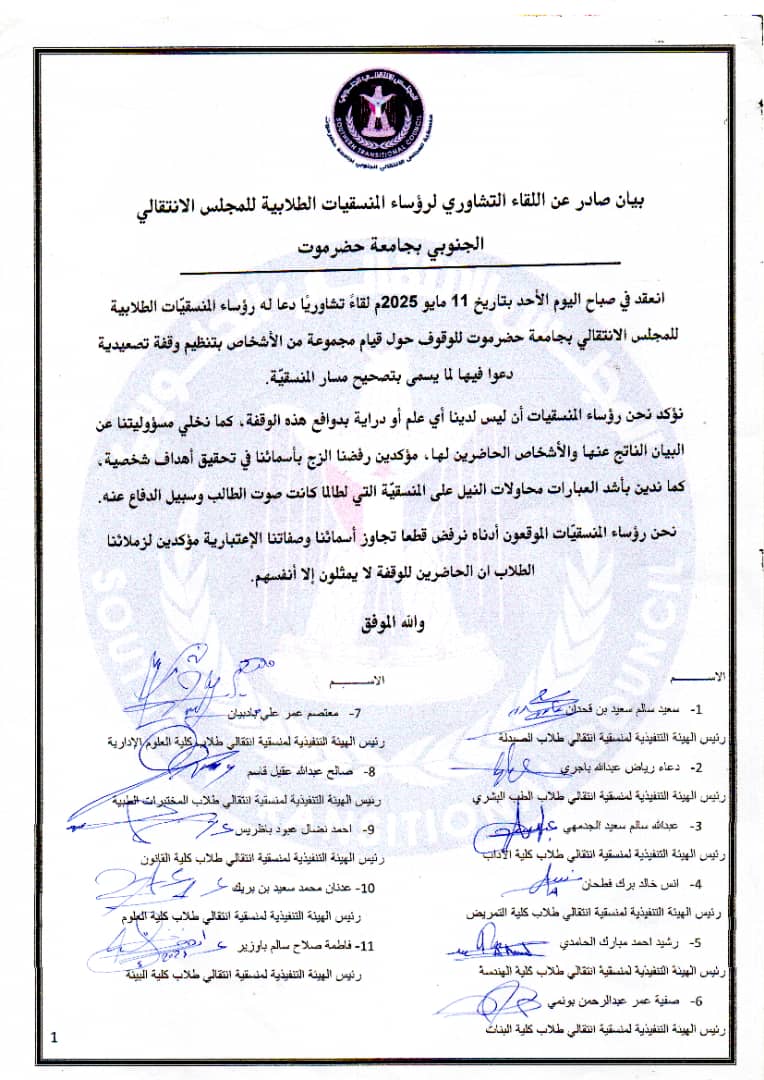 المجلس الانتقالي الجنوبي
SOUTHERN TRANSITIONAL COUNCIL
منسقية المجلس الانتقالي الجنوبي لجامعة حضرموت
بيان صادر عن اللقاء التشاوري لرؤساء المنسقيات الطلابية للمجلس الانتقالي
الجنوبي بجامعة حضرموت
انعقد في صباح اليوم الأحد بتاريخ 11 مايو 2025م لقاءً تشاوريًا دعا له رؤساء المنسقيّات الطلابية
للمجلس الانتقالي بجامعة حضرموت للوقوف حول قيام مجموعة من الأشخاص بتنظيم وقفة تصعيدية
دعوا فيها لما يسمى بتصحيح مسار المنسقيّة.
نؤكد نحن رؤساء المنسقيات أن ليس لدينا أي علم أو دراية بدوافع هذه الوقفة، كما نخلي مسؤوليتنا عن
البيان الناتج عنها والأشخاص الحاضرين لها، مؤكدين رفضنا الزج بأسمائنا في تحقيق أهداف شخصية،
كما ندين بأشد العبارات محاولات النيل على المنسقيّة التي لطالما كانت صوت الطالب وسبيل الدفاع عنه.
نحن رؤساء المنسقيّات الموقعون أدناه نرفض قطعا تجاوز أسمائنا وصفاتنا الإعتبارية مؤكدين لزملائنا
الطلاب ان الحاضرين للوقفة لا يمثلون إلا أنفسهم.
والله الموفق
الاســـــــم
1- سعيد سالم سعيد بن قحدان
رئيس الهيئة التنفيذية لمنسقية انتقالي طلاب الصيدلة
2- دعاء رياض عبدالله باجري
رئيس الهيئة التنفيذية لمنسقية انتقالي طلاب الطب البشري
3- عبدالله سالم سعيد الجدمهي
رئيس الهيئة التنفيذية لمنسقية انتقالي طلاب كلية الآداب
4- انس خالد برك فطحان
رئيس الهيئة التنفيذية لمنسقية انتقالي طلاب كلية التمريض
5- رشيد احمد مبارك الحامدي
رئيس الهيئة التنفيذية لمنسقية انتقالي طلاب كلية الهندسة
6- صفية عمر عبدالرحمن بونمي
رئيس الهيئة التنفيذية لمنسقية انتقالي طلاب كلية البنات
الاســـــــم
7- معتصم عمر علي بادبيان
رئيس الهيئة التنفيذية لمنسقية انتقالي طلاب كلية العلوم الإدارية
8- صالح عبدالله عقيل قاسم
رئيس الهيئة التنفيذية لمنسقية انتقالي طلاب المختبرات الطبية
9- احمد نضال عبود باظريس
رئيس الهيئة التنفيذية لمنسقية انتقالي طلاب كلية القانون
10- عدنان محمد سعيد بن بريك
رئيس الهيئة التنفيذية لمنسقية انتقالي طلاب كلية العلوم
11- فاطمة صلاح سالم باوزير
رئيس الهيئة التنفيذية لمنسقية انتقالي طلاب كلية البيئة
1